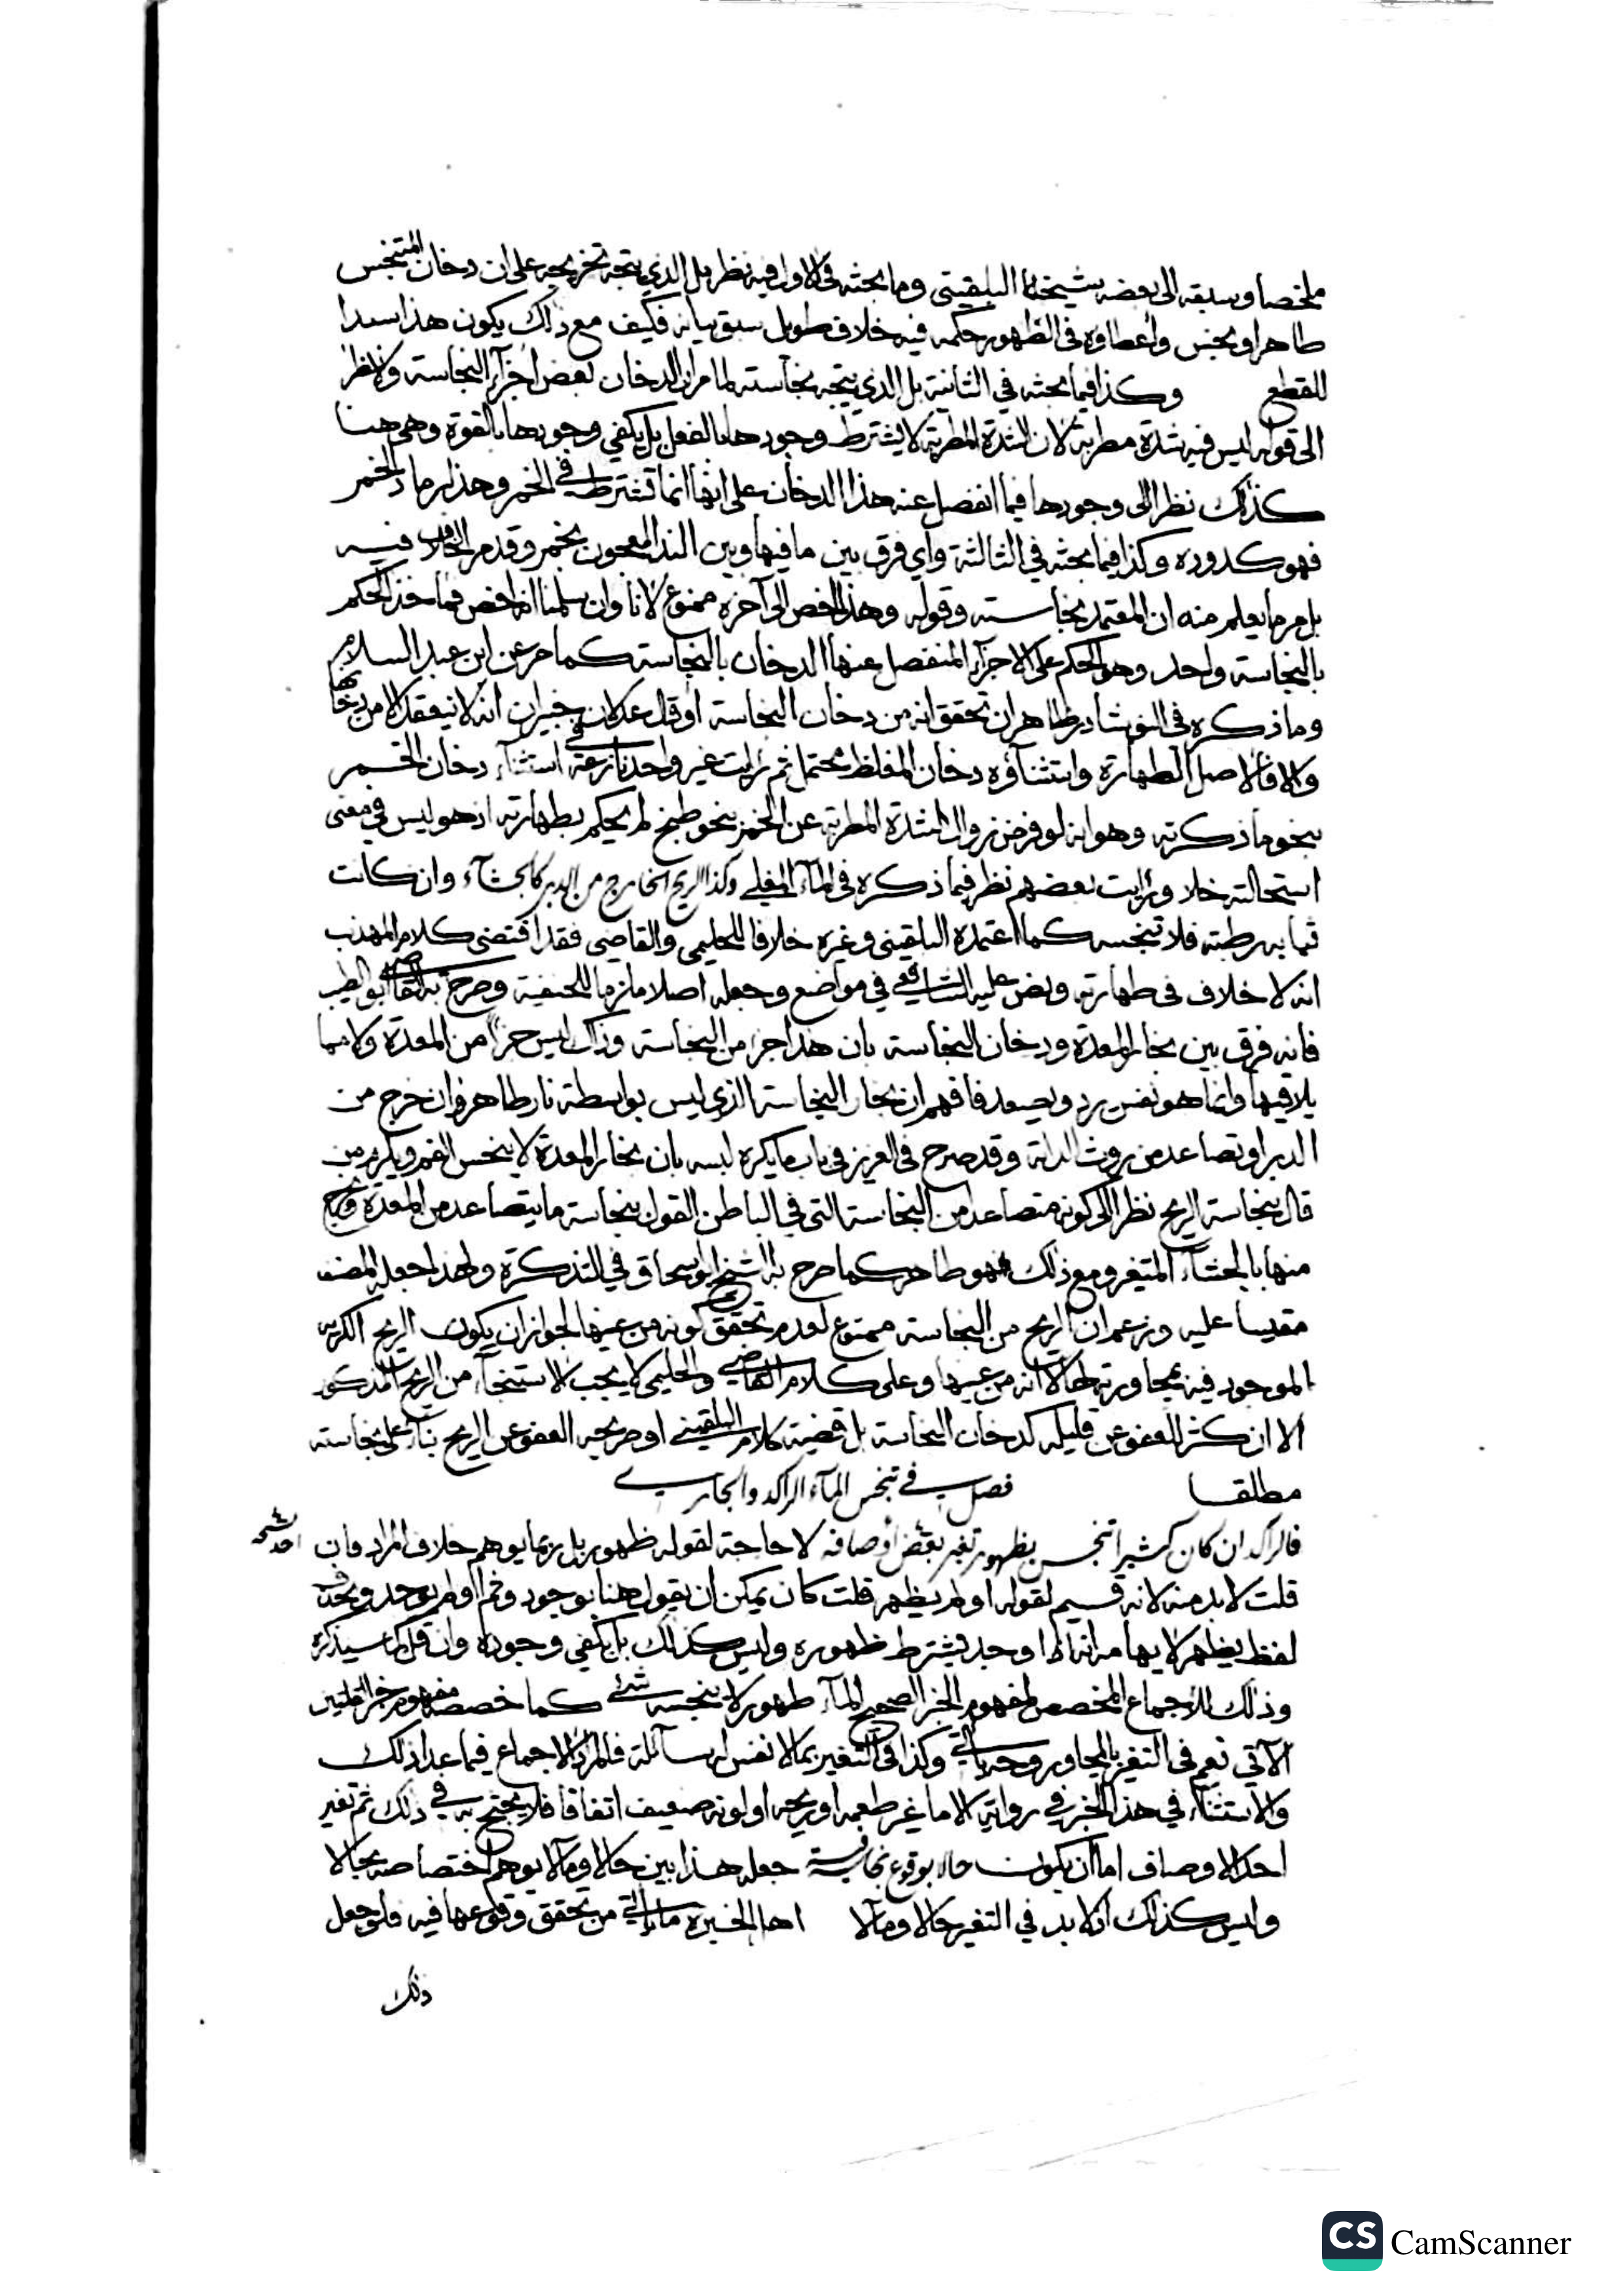 ملخصا وسبقه الى بعضه شيخنا البلقيني وما بحثه في الاولى فيه نظر بل الذي يتجه تخريجه على ان دخان المتنجس
طاهر او نجس واعطاؤه في الظهور حكمه فيه خلاف طويل سبق بيانه فكيف مع ذلك يكون هذا سندا
للقطع وكذا فيما بحثه في الثانية بل الذي يتجه نجاسته لما مر ان الدخان بعض اجزآء النجاسة ولا نظر
الى قوله ليس فيه شدة مطربة لان الشدة المطربة لا يشترط وجودها بالفعل بل يكفي وجودها بالقوة وهي هنا
كذلك نظرا الى وجودها فيما انفصل عنه هذا الدخان على انها انما تشترط في الخمر وهذا رماد الخمر
فهو كدوده وكذا فيما بحثه في الثالثة واي فرق بين ما فيها وبين الند المعجون بخمر وقد مر الخلاف فيه
بل مر ما يعلم منه ان المعتمد نجاسته وقوله وهذا اخص الى آخره ممنوع لانا وان سلمنا انه اخص فمأخذ الحكم
بالنجاسة واحد وهو الحكم على الاجزآء المنفصل عنها الدخان بالنجاسة كما مر عن ابن عبد السلام
وما ذكره في النوشادر ظاهر ان تحقق انه من دخان النجاسة او قال عدلان خبيران انه لا ينعقد الا من دخانها
والا فالاصل الطهارة واستثناؤه دخان المغلظ محتمل ثم رايت غير واحد نازعه في استثنآء دخان الخمر
بنحو ما ذكرته وهو انه لو فرض زوال الشدة المطربة عن الخمر بنحو طبخ لم يحكم بطهارته اذ هو ليس في معنى
استحالته خلا ورايت بعضهم نظر فيما ذكره في المآء المغلي وكذا الريح الخارج من الدبر كالجشآء وان كانت
ثيابه رطبة فلا تنجسه كما اعتمده البلقيني وغيره خلافا للحليمي والقاضي فقد اقتضى كلام المهذب
انه لا خلاف في طهارته ونص عليه الشافعي في مواضع وجعله اصلا ملزما للحنفية وصرح به القاضي ابو الطيب
فانه فرق بين بخار المعدة ودخان النجاسة بان هذا جزء من النجاسة وذاك ليس جزأ من المعدة ولا مما
يلاقيها وانما هو نفس يرد ويصعد فافهم ان بخار النجاسة الذي ليس بواسطة نار طاهر وان خرج من
الدبر او تصاعد من روث الدابة وقد صرح في العزيز في باب ما يكره لبسه بان بخار المعدة لا ينجس الفم ويلزم من
قال بنجاسة الريح نظرا الى كونه متصاعدا من النجاسة التي في الباطن القول بنجاسة ما يتصاعد من المعدة ويخرج
منها بالجشآء المتغير ومع ذلك فهو طاهر كما صرح به الشيخ ابو اسحاق في التذكرة ولهذا جعله المصنف
مقيسا عليه وزعم ان الريح من النجاسة ممنوع لعدم تحقق كونه من عينها لجواز ان يكون الريح الكريه
الموجود فيه لمجاورته لها لا انه من عينها وعلى كلام القاضي والحليمي لا يجب الاستنجآء من الريح المذكور
الا ان كثر للعفو عن قليله كدخان النجاسة بل قضية كلام البلقيني او صريحه العفو عن الريح بنآء على نجاسته
مطلقا فصل في تنجس المآء الراكد والجاري
فالراكد ان كان كثيرا تنجس بظهور تغير بعض اوصافه لا حاجة لقوله ظهور بل ربما يوهم خلاف المراد فان
قلت لا بد منه لانه قسيم لقوله او لم يظهر قلت كان يمكن ان يقول هنا بوجود وثم او لم يوجد ويحذف
لفظ يظهر لايهامه انه اذا وجد يشترط ظهوره وليس كذلك بل يكفي وجوده وان قل كما سيذكره
وذلك للاجماع المخصص لمفهوم الخبر الصحيح المآء طهور لا ينجسه شئ كما خصصه مفهوم خبر القلتين
الآتي نعم في التغير بالمجاور وجه ياتي وكذا في التغير بما لا نفس له سآئلة فالمراد الاجماع فيما عدا ذلك
والاستثنآء في هذا الخبر في رواية الا ما غير طعمه او ريحه او لونه ضعيف اتفاقا فلا يحتج به في ذلك ثم تغير
احد الاوصاف اما ان يكون حالا بوقوع نجاسة فيه جعله هذا بين حالا ومآلا يوهم اختصاصه بحالا
وليس كذلك اذ لا بد في التغير حالا ومآلا اهل الخبرة ما ياتي من تحقق وقوعها فيه فلو جعل
ذلك